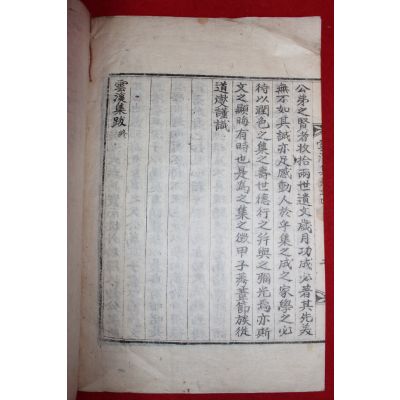 公弟之賢者收拾兩世遺文歲月功成必著其先美
無不如其誠亦足感動人於乎集之成之家學之必
待以潤色之集之壽世德行之幷與之彌光焉亦斯
文之顯晦有時也是為之集之徵甲子黃節族從
道謹識
雲溪集跋